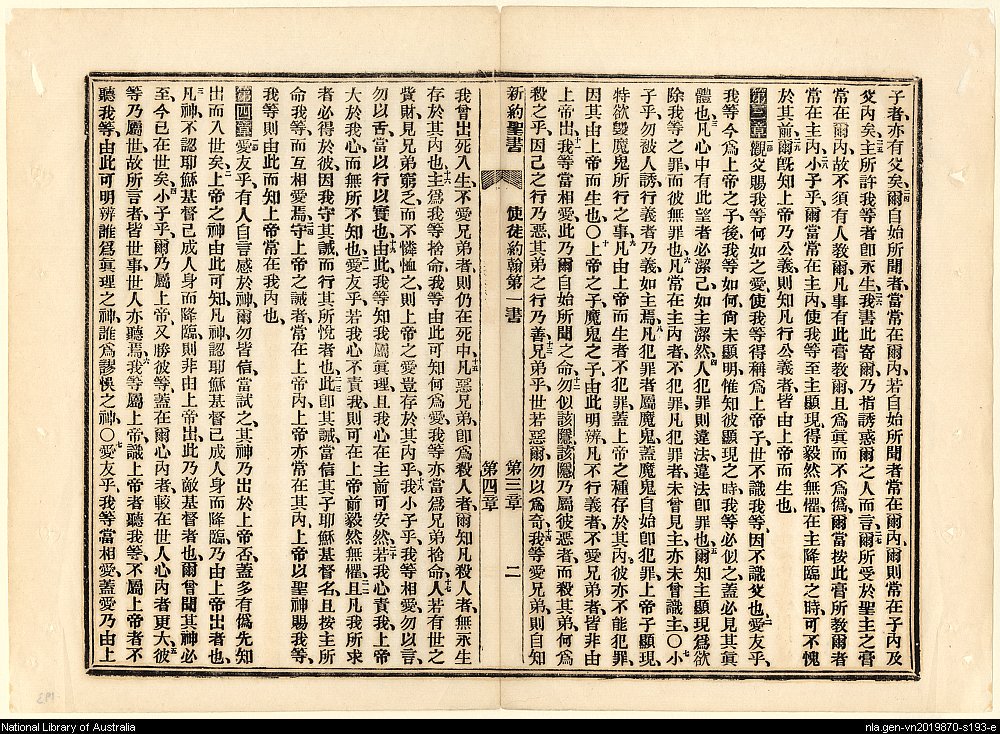 子者、亦有父矣、爾自始所聞者當常在爾內、若自始所聞者常在爾內、爾則常在子內及
父內矣、主所許我等者卽永生、我書此寄爾、乃指誘惑爾之人而言、爾所受於聖主之膏
常在爾內、故不須有人教爾、凡事有此膏教爾、且爲眞而不爲僞、爾當按此膏所教爾者
常在主內、小子乎、爾當常在主內、使我等至主顯現、得毅然無懼、在主降臨之時、可不愧
於其前、爾旣知上帝乃公義、則知凡行公義者、皆由上帝而生也、
第三章 觀父賜我等何如之愛、使我等得稱爲上帝子、世不識我等、因不識父也、愛友乎、
我等今爲上帝之子、後我等如何、尙未顯明、惟知彼顯現之時、我等必似之、蓋必見其眞
體也、凡心中有此望者、必潔己如主潔然、人犯罪則違法、違法卽罪也、爾知主顯現爲欲
除我等之罪、而彼無罪也、凡常在主內者、不犯罪、凡犯罪者、未曾見主、亦未曾識主、○小
子乎、勿被人誘、行義者乃義、如主焉、凡犯罪者屬魔鬼、蓋魔鬼自始卽犯罪、上帝子顯現、
特欲毀魔鬼所行之事、凡由上帝而生者、不犯罪、蓋上帝之種存於其內、彼亦不能犯罪、
因其由上帝而生也、○上帝之子、魔鬼之子、由此明辨、凡不行義者、不愛兄弟者、皆非由
上帝出、我等當相愛、此乃爾自始所聞之命、勿似該隱、該隱乃屬彼惡者、而殺其弟、何爲
殺之乎、因己之行乃惡、其弟之行乃善、兄弟乎、世若惡爾、勿以爲奇、我等愛兄弟、則自知
新約聖書 使徒約翰第一書 第三章 第四章 二
我曾出死入生、不愛兄弟者、則仍在死中、凡惡兄弟、卽爲殺人者、爾知凡殺人者、無永生
存於其內也、主爲我等捨命、我等由此可知何爲愛、我等亦當爲兄弟捨命、人若有世之
貲財、見兄弟窮乏、而不憐恤之、則上帝之愛豈存於其內乎、我小子乎、我等相愛勿以言、
勿以舌、當以行以實也、由此我等知我屬眞理、且我心在主前可安然、若我心責我、上帝
大於我心、而無所不知也、愛友乎、若我心不責我、則可在上帝前毅然無懼、且凡我所求
者、必得於彼、因我守其誡、而行其所悅者也、此卽其誡、當信其子耶穌基督名、且按主所
命我等而互相愛焉、守上帝之誡者、常在上帝內、上帝亦常在其內、上帝以聖神賜我等、
我等則由此而知上帝常在我內也、
第四章 愛友乎、有人自言感於神、爾勿皆信、當試之、其神乃出於上帝否、蓋多有僞先知
出而入世矣、上帝之神由此可知、凡神認耶穌基督已成人身而降臨、乃由上帝出者也、
凡神不認耶穌基督已成人身而降臨、則非由上帝出、此乃敵基督者也、爾曾聞其神必
至、今已在世矣、小子乎、爾乃屬上帝、又勝彼等、蓋在爾心內者、較在世人心內者更大、彼
等乃屬世、故所言者、皆世事、世人亦聽焉、我等屬上帝、識上帝者聽我等、不屬上帝者不
聽我等、由此可明辨誰爲眞理之神、誰爲謬悞之神、○愛友乎、我等當相愛、蓋愛乃由上
National Library of Australia
nla.gen-vn2019870-s193-e